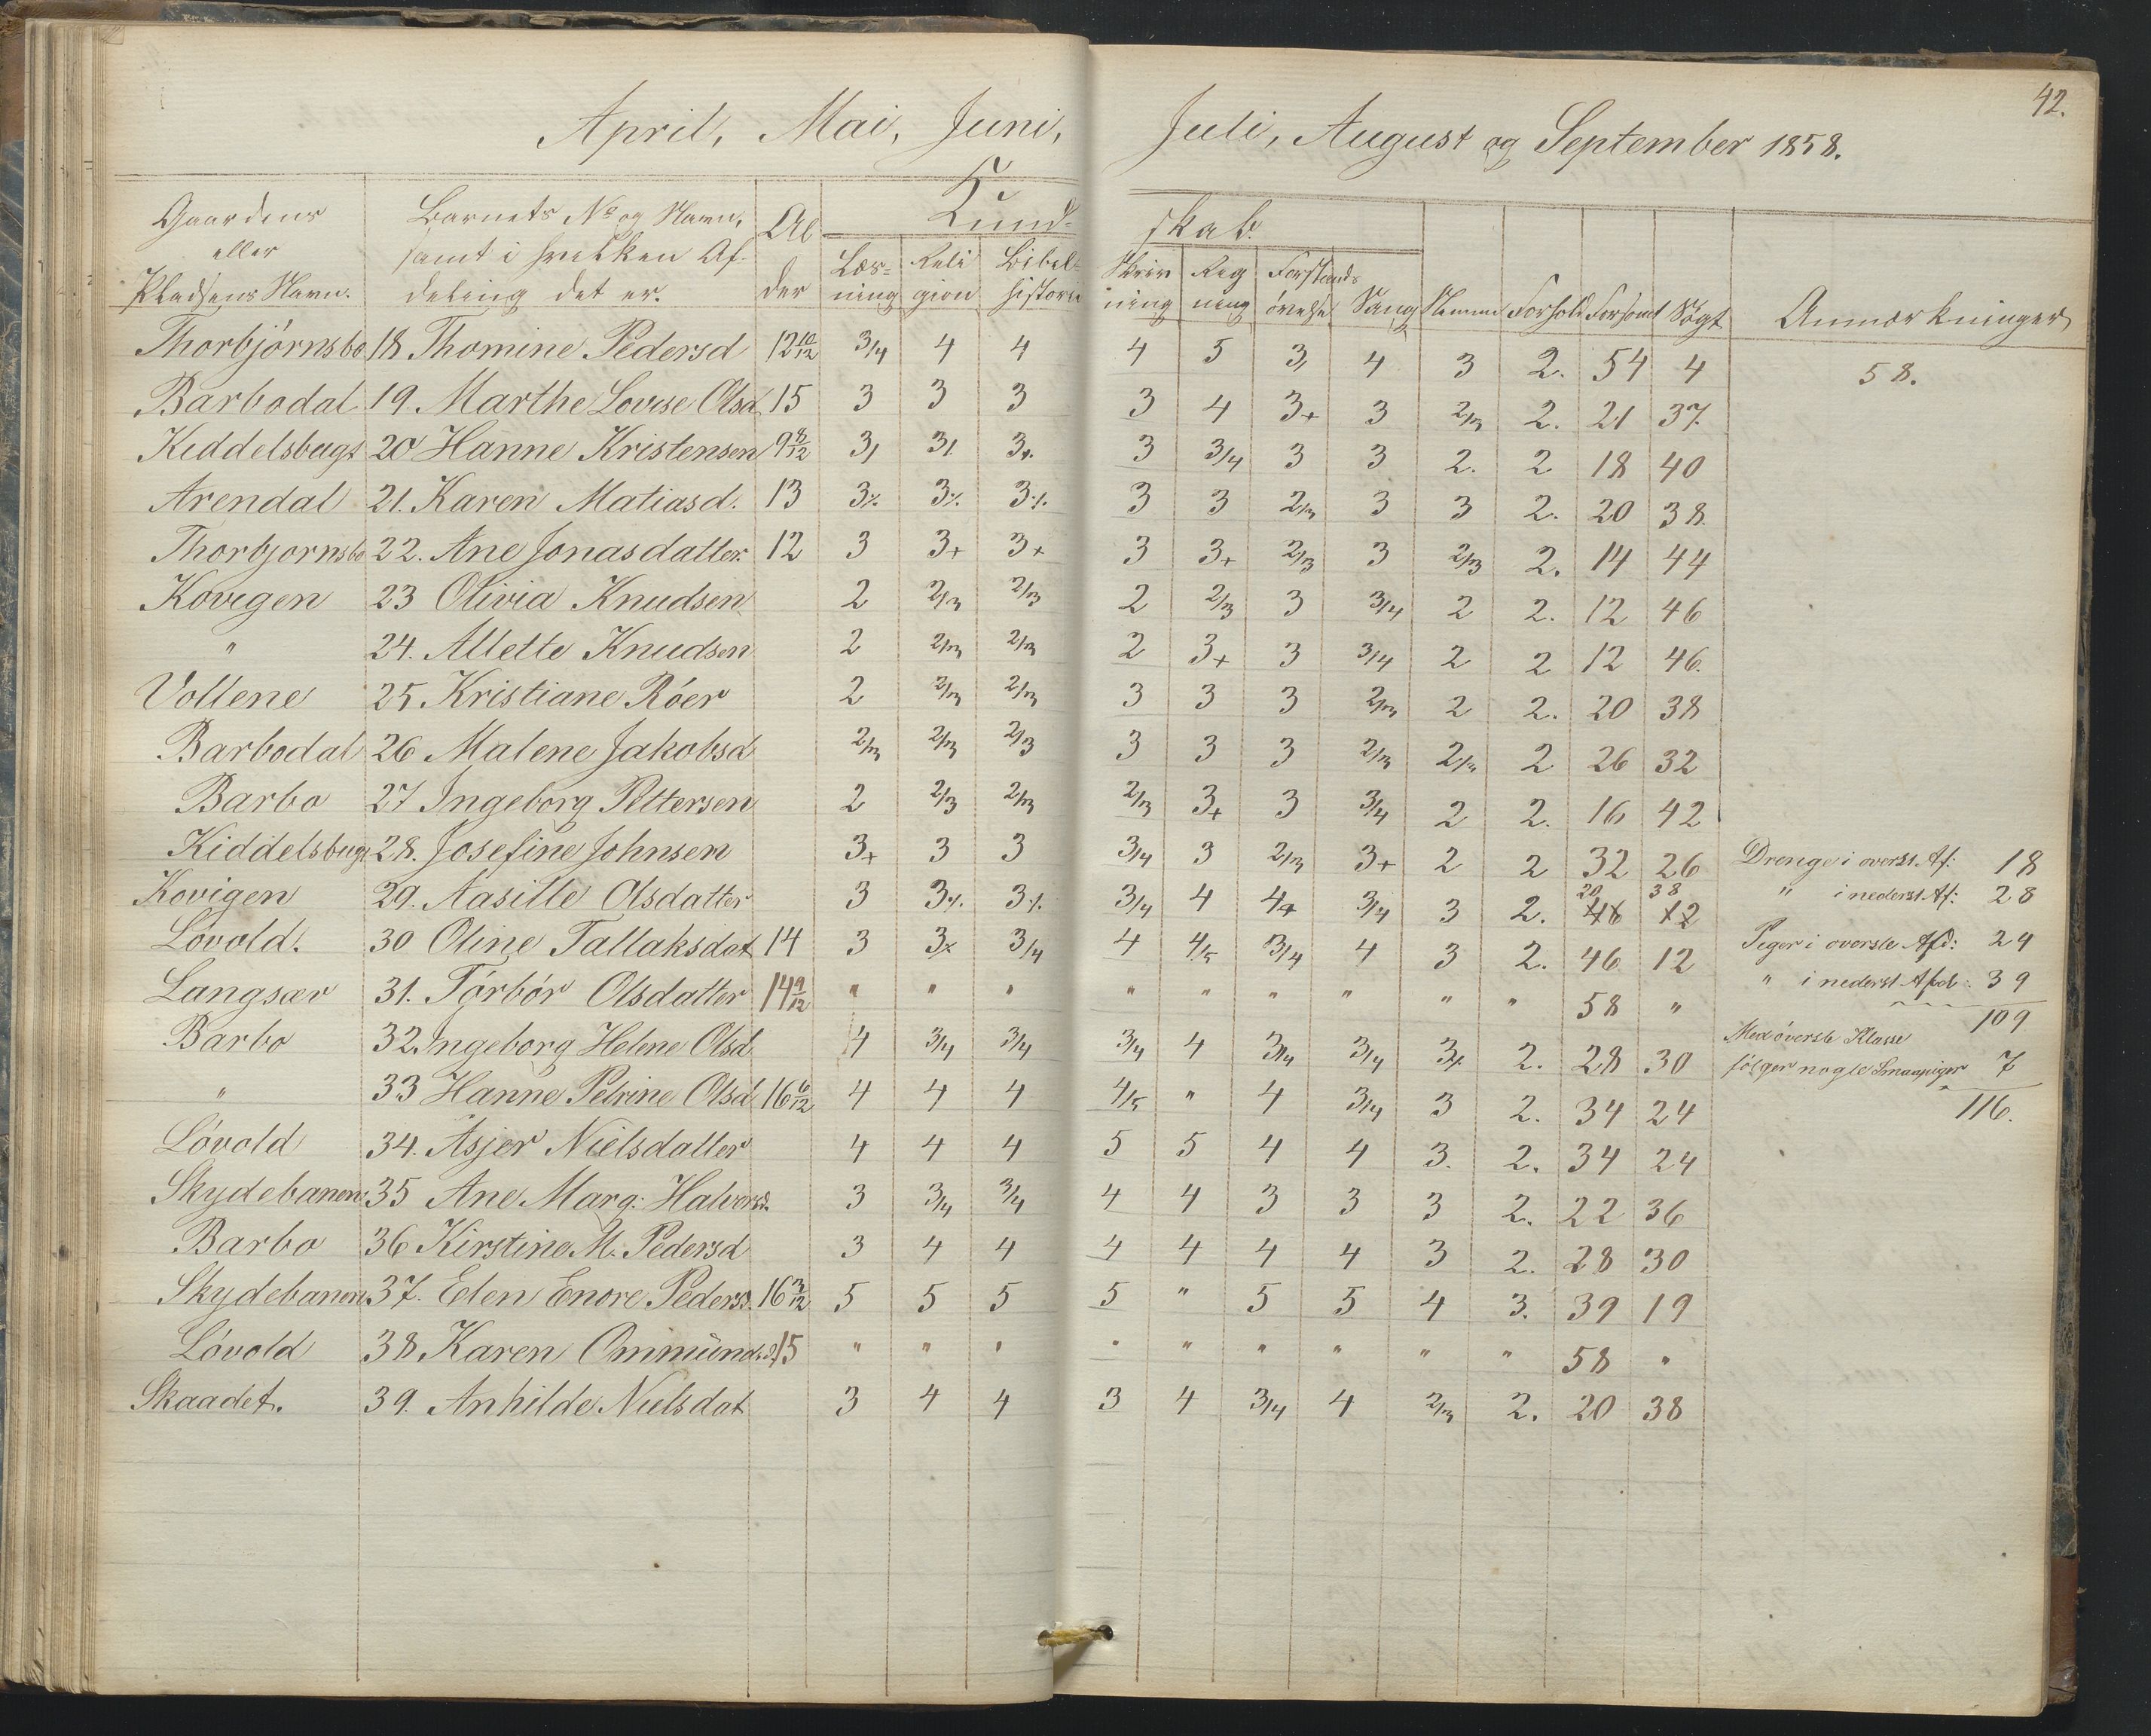 42.
April, Mai, Juni, Juli, August og September 1858.
Gaardens eller Pladsens Navn. Barnets No og Navn, samt i hvilken Afdeling det er. Alder Kundskab. Læsning Religion Bibelhistorie Skrivning Regning Forstandsövelse Sang Nemme Forhold Forsömt Sögt Anmærkninger
Thorbjörnsbo 18 Thomine Pedersd 12 10/12 3/4 4 4 4 5 3, 4 3 2. 54 4 58.
Barbodal 19. Marthe Lovise Olsd 15 3 3 3 3 4 3+ 3 2/3 2. 21 37.
Kiddelsbugt 20 Hanne Kristensen 9 8/12 3, 3, 3+. 3 3/4 3 3 2. 2 18 40
Arendal 21. Karen Matiasd. 13 3%. 3%. 3%. 3 3 2/3 3 3 2. 20 38.
Thorbjornsbo 22. Ane Jonasdatter. 12 3 3+ 3+ 3 3+ 2/3 3 2/3 2. 14 44
Kovigen 23 Olivia Knudsen 2 2/3 2/3 2 2/3 3 3/4 2 2. 12 46
" 24. Allette Knudsen 2 2/3 2/3 2 3+ 3 3/4 2 2 12 46.
Vollene 25. Kristiane Röer 2 2/3 2/3 3 3 3 2/3 2 2. 20 38
Barbodal 26 Malene Jakobsd 2/3 2/3 2/3 3 3 3 2/3 2/3 2 26 32
Barbo 27 Ingeborg Pettersen 2 2/3 2/3 2/3 3+ 3 3/4 2 2. 16 42
Kiddelsbugt 28. Josefine Johnsen 3+ 3 3 3/4 3 2/3 3+ 2 2 32 26 Drenge i overst. Af: 18
Kovigen 29. Aasille Olsdatter 3 3%. 3%. 3/4 4 4+ 3/4 3 2. 20 46 38 12 " i nederst. Af: 28
Lövold. 30 Oline Tallaksdat 14 3 3x 3/4 4 4/5 3/4 4 3 2. 46 12 Peger i overste Afd: 24
Langsær 31. Törbör Olsdatter 14 9/12 " " " " " " " " " 58 " " i nederst Afd: 39
109
Barbo 32. Ingeborg Helene Olsd 4 3/4 3/4 3/4 4 3/4 3/4 3+ 2. 28 30 Med överste Klasse fölger nogle Smaapiger 7
" 33 Hanne Petrine Olsd 16 6/12 4 4 4 4/5 " 4 3/4 3 2. 34 24 116.
Lövold 34. Asjer Nielsdatter 4 4 4 5 5 4 4 3. 2. 34 24
Skydebanen 35 Ane Marg: Halvorsd. 3 3/4 3/4 4 4 3 3 3 2. 22 36
Barbo 36 Kirstine M. Pedersd 3 4 4 4 4 4 4 3 2. 28 30
Skydebanen 37. Elen Enore Pedersd. 16 3/12 5 5 5 5 " 5 5 4 3. 39 19
Lövold 38 Karen Ommündsd 15 " " " " " " " " " 58 "
Skaadet. 39. Anhilde Nielsdat 3 4 4 3 4 3/4 4 2/3 2. 20 38